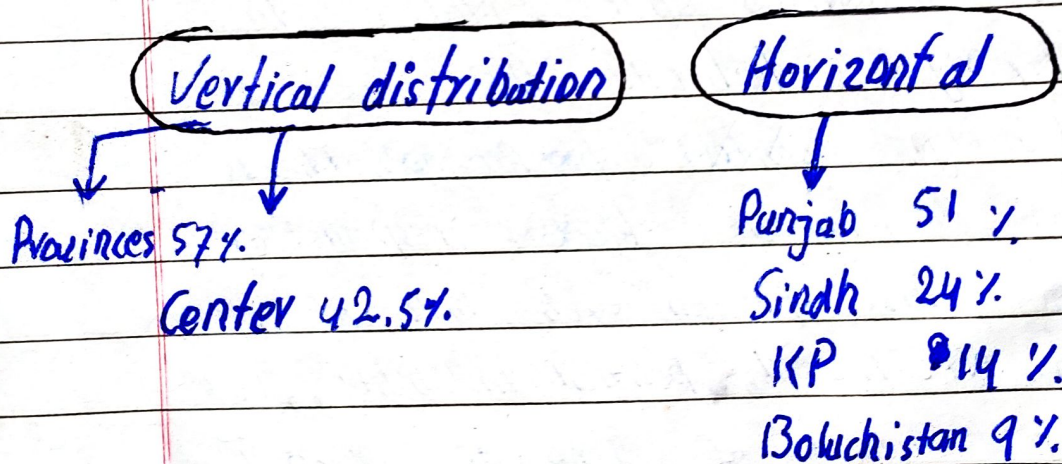 Vertical distribution
Provinces 57%.
Center 42.5%.
Horizontal
Punjab 51 %
Sindh 24%.
KP 14 %.
Boluchistan 9%.